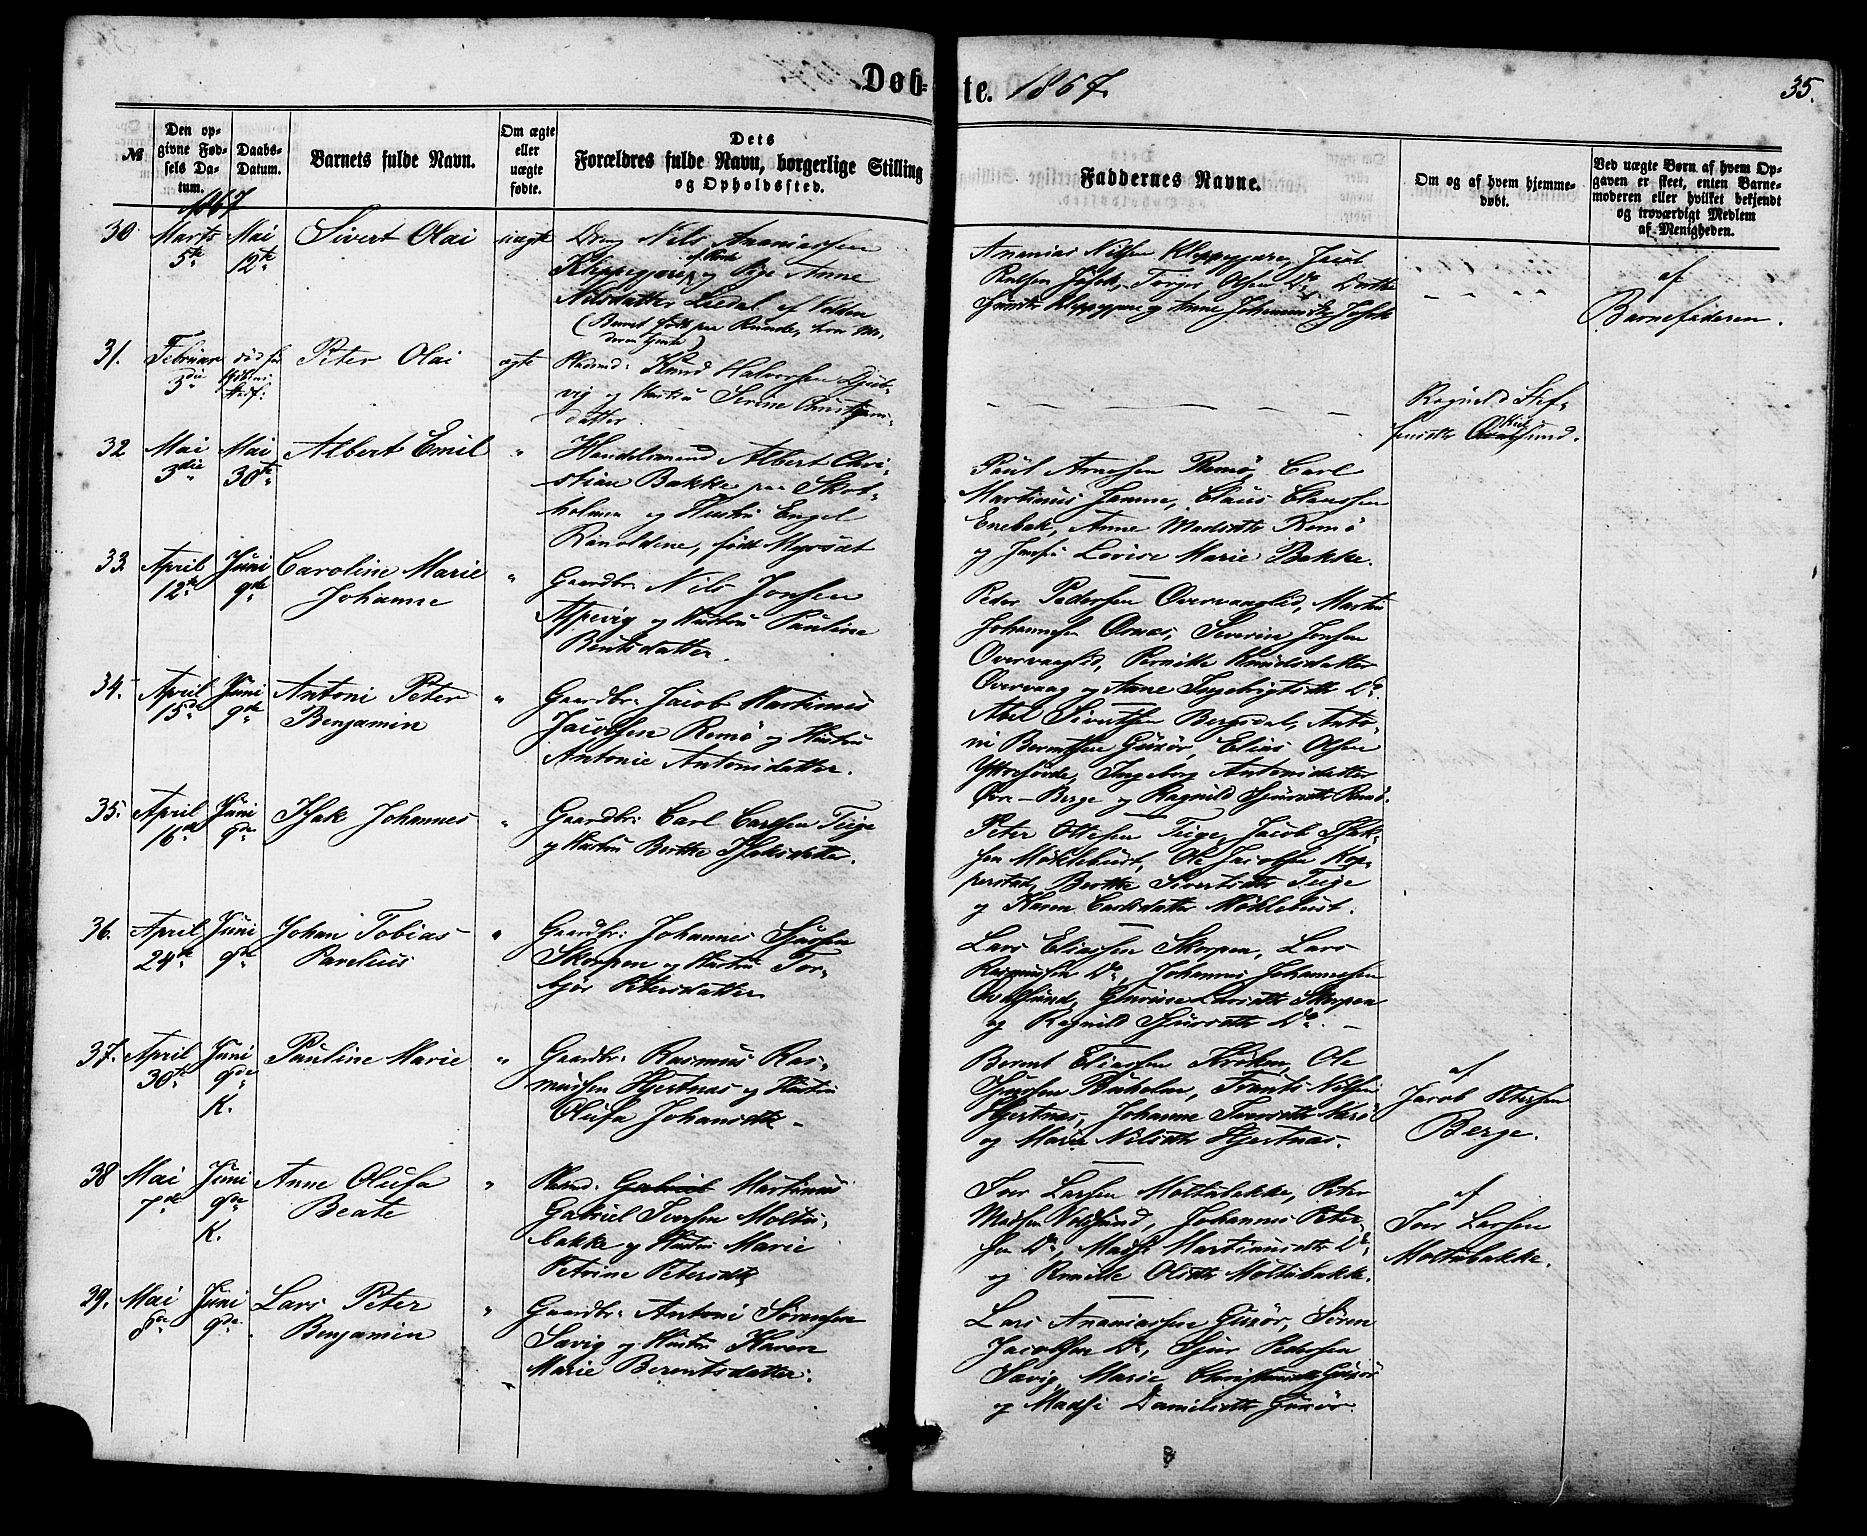 Døb-
te. 1867.
35.
№
Den op-
givne Fød-
sels Da-
tum.
Daabs-
Datum.
Barnets fulde Navn.
Om ægte
eller
uægte
fødte.
Dets
Forældres fulde Navn, borgerlige Stilling
og Opholdssted.
Faddernes Navne.
Om og af hvem hjemme-
døbt.
Ved uægte Børn af hvem Op-
gaven er skeet, enten Barne-
moderen eller hvilket bekjendt
og troværdigt Medlem
af Menigheden.
1867
30
Marts
5te
Mai
12te
Sivert Olai
uægte
Drg Nils Ananiassen
Kleppegjære og Pige Anne
Nilsdatter Liedal af Volden
(Barnet født paa Runde, hvor Mo-
deren tjente)
Ananias Nilsen Kleppegjære, Jacob
Olsen Do, Dorthe
Kleppegjære og Anne
af
Barnefaderen.
31.
Februar
3die
Peter Olai
ægte
Pladsmd: Knud Halvorsen Djub-
vig og Hustru Serine Christians-
datter.
Ragnild Stef-
fensdtr
32
Mai
3die
Mai
30te
Albert Emil
"
Handelsmand Albert Chri-
stian Bakke paa Skot-
holmen og Hustru Engel
Rinoldine, født Myrsæt
Paul Arnesen Remø, Carl
Martinus Janne, Claus Claussen
Enebak, Anne Madsdtr Remø
og Jomfru Lovise Marie Bakke.
33
April
12te
Juni
9de
Caroline Marie
Johanne
"
Gaardbr: Nils Jonsen
Aspevig og Hustru Pauline
Bentsdatter.
Peder Pedersen Overvaaglid, Martin
Johannesen Osnæs, Severin Jonsen
Overvaaglid, Pernille Knudsdatter
Overvaag og Anne Ingebrigtsdtr Do.
34.
April
15de
Juni
9de
Antoni Peter
Benjamin
"
Gaardbr: Jacob Martinus
Jacobsen Remø og Hustru
Antonie Antonsdatter.
Abel Sivertsen Bergsdal, Anto-
ni Berntsen Gurør, Elias Olsen
Yttresørde, Ingeborg Antonsdatter
Øvre-Berge og Ragnild Sjursdtr Remø.
35.
April
16de
Juni
9de
Isak Johannes
"
Gaardbr: Carl Carlsen Teige
og Hustru Berthe Isaksdatter.
Peter Ottesen Teige, Jacob Isak-
sen Møklebust, Ole Jacobsen Kop-
perstad, Berthe Sivertsdtr Teige
og Karen Carlsdatter Møklebust.
36.
April
24de
Juni
9de
Johan Tobias
Parelius
"
Gaardbr: Johannes Sjursen
Skorpen og Hustru Tor-
bjør Petersdatter
Lars Eliassen Skorpen, Lars
Rasmussen Do, Johannes Johannessen
Larsdtr Skorpen
og Ragnild Sjursdtr Do. -
37.
April
30te
Juni
9de
K.
Pauline Marie
"
Gaardbr: Rasmus Ras-
mussen Hjertnes og Hustru
Olufa Johansdtr -
Bernt Eliassen Krøken, Ole
Nilsen
Hjertnes, Johanne
og Marie Nilsdtr Hjertnæs.
af
Jacob Petersen
Berge.
38
Mai
7de
Juni
9de
K.
Anne Olufa
Beate
"
Plsmd: Gabriel Martinus
Gabriel Iversen Moltu-
bakke og Hustru Marie
Petrine Petersdtr
Iver Larsen Moltubakke, Peter
Madsen Voldsund, Johannes Peter-
sen Do, Madsi Martinusdtr Do
og Olsdtr Moltubakke.
af
Iver Larsen
Moltubakke.
39.
Mai
8de
Juni
9de
Lars Peter
Benjamin
"
Gaardbr: Antoni Sørensen
Savig og Hustru Karen
Marie Berentsdatter.
Lars Ananiassen Gurør, Søren
Jacobsen Do, Sjur Pedersen
Savig, Marie Gurør
og Madsi Danielsdtr Gurør.